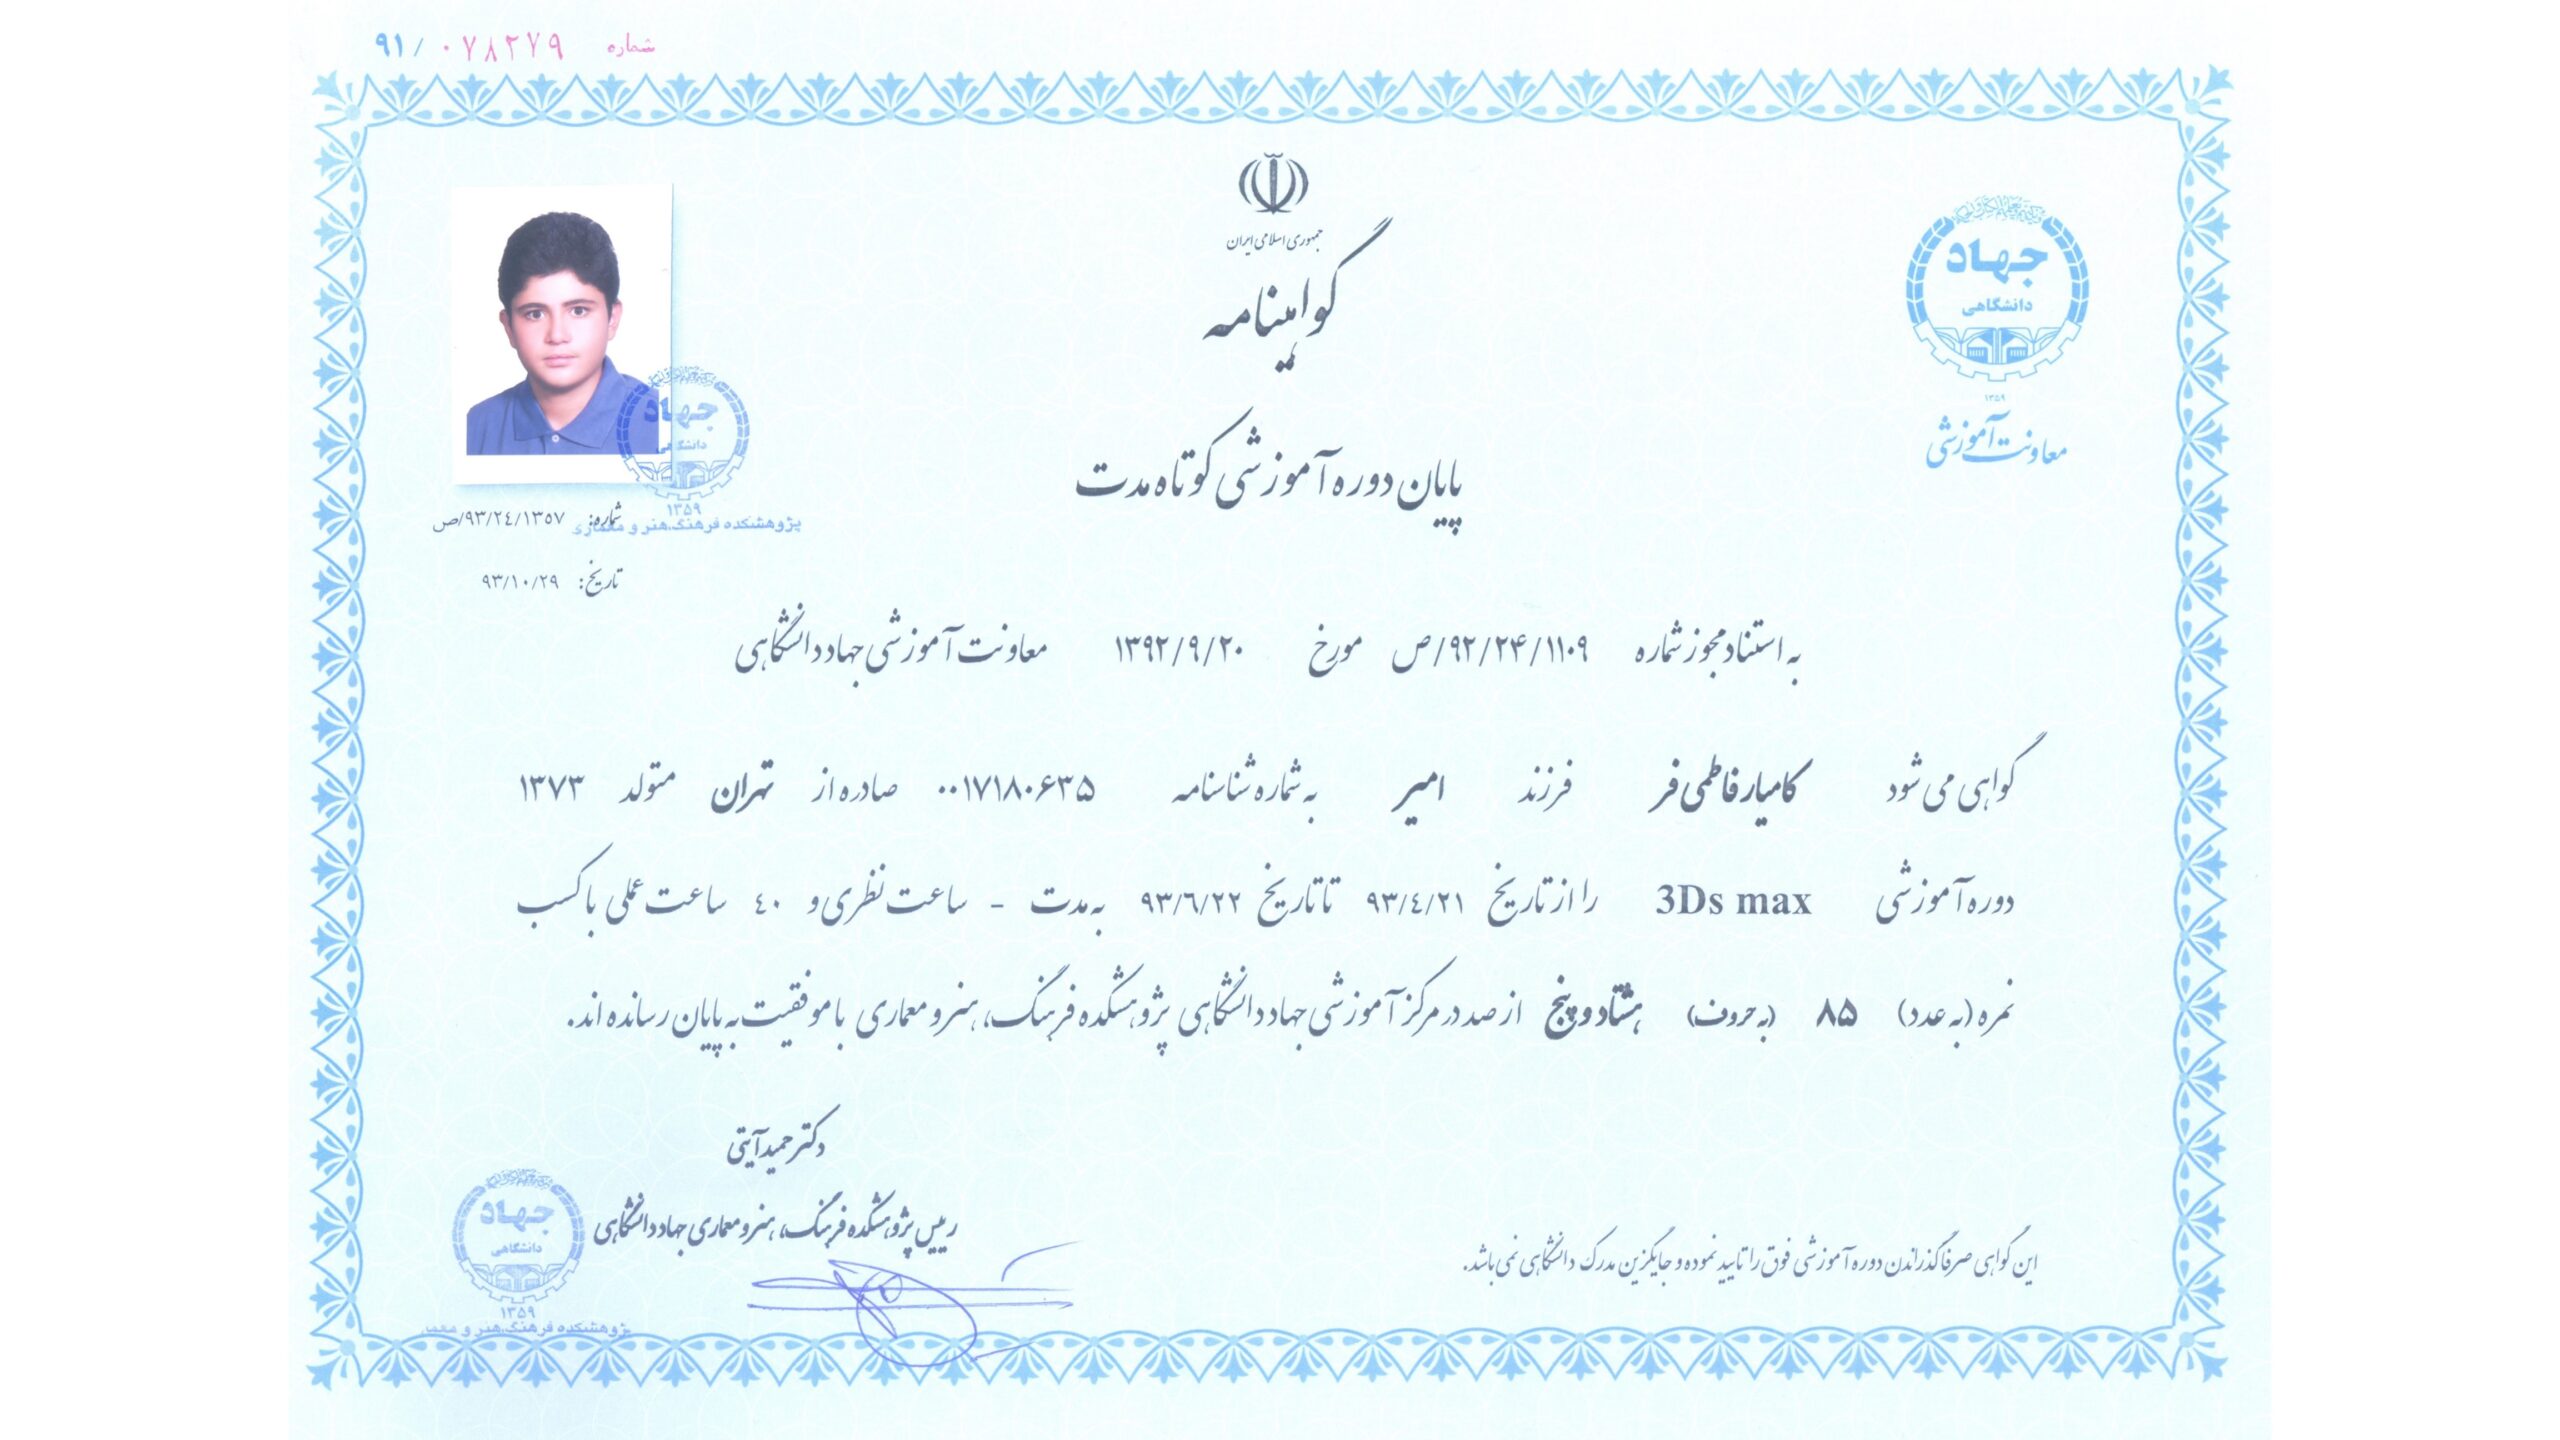 شماره ۹۱/۰۷۸۲۷۹
جمهوری اسلامی ایران
گواهینامه
جهاد
دانشگاهی
۱۳۵۹
معاونت آموزشی
پایان دوره آموزشی کوتاه مدت
جهاد
دانشگاهی
۱۳۵۹
پژوهشکده فرهنگ، هنر و معماری
شماره: ۹۳/۲٤/۱۳۵۷/ص
تاریخ: ۹۳/۱۰/۲۹
به استناد مجوز شماره ۹۲/۲۴/۱۱۰۹/ص مورخ ۱۳۹۲/۹/۲۰ معاونت آموزشی جهاد دانشگاهی
گواهی می شود کامیار فاطمی فر فرزند امیر به شماره شناسنامه ۰۰۱۷۱۸۰۶۳۵ صادره از تهران متولد ۱۳۷۳
دوره آموزشی 3Ds max را از تاریخ ۹۳/٤/۲۱ تا تاریخ ۹۳/٦/۲۲ به مدت - ساعت نظری و ٤۰ ساعت عملی با کسب
نمره (به عدد) ۸۵ (به حروف) هشتاد و پنج از صد در مرکز آموزشی جهاد دانشگاهی پژوهشکده فرهنگ، هنر و معماری با موفقیت به پایان رسانده اند.
دکتر حمید آیتی
رییس پژوهشکده فرهنگ، هنر و معماری جهاد دانشگاهی
جهاد
دانشگاهی
۱۳۵۹
پژوهشکده فرهنگ، هنر و
این گواهی صرفا گذراندن دوره آموزشی فوق را تایید نموده و جایگزین مدرک دانشگاهی نمی باشد.